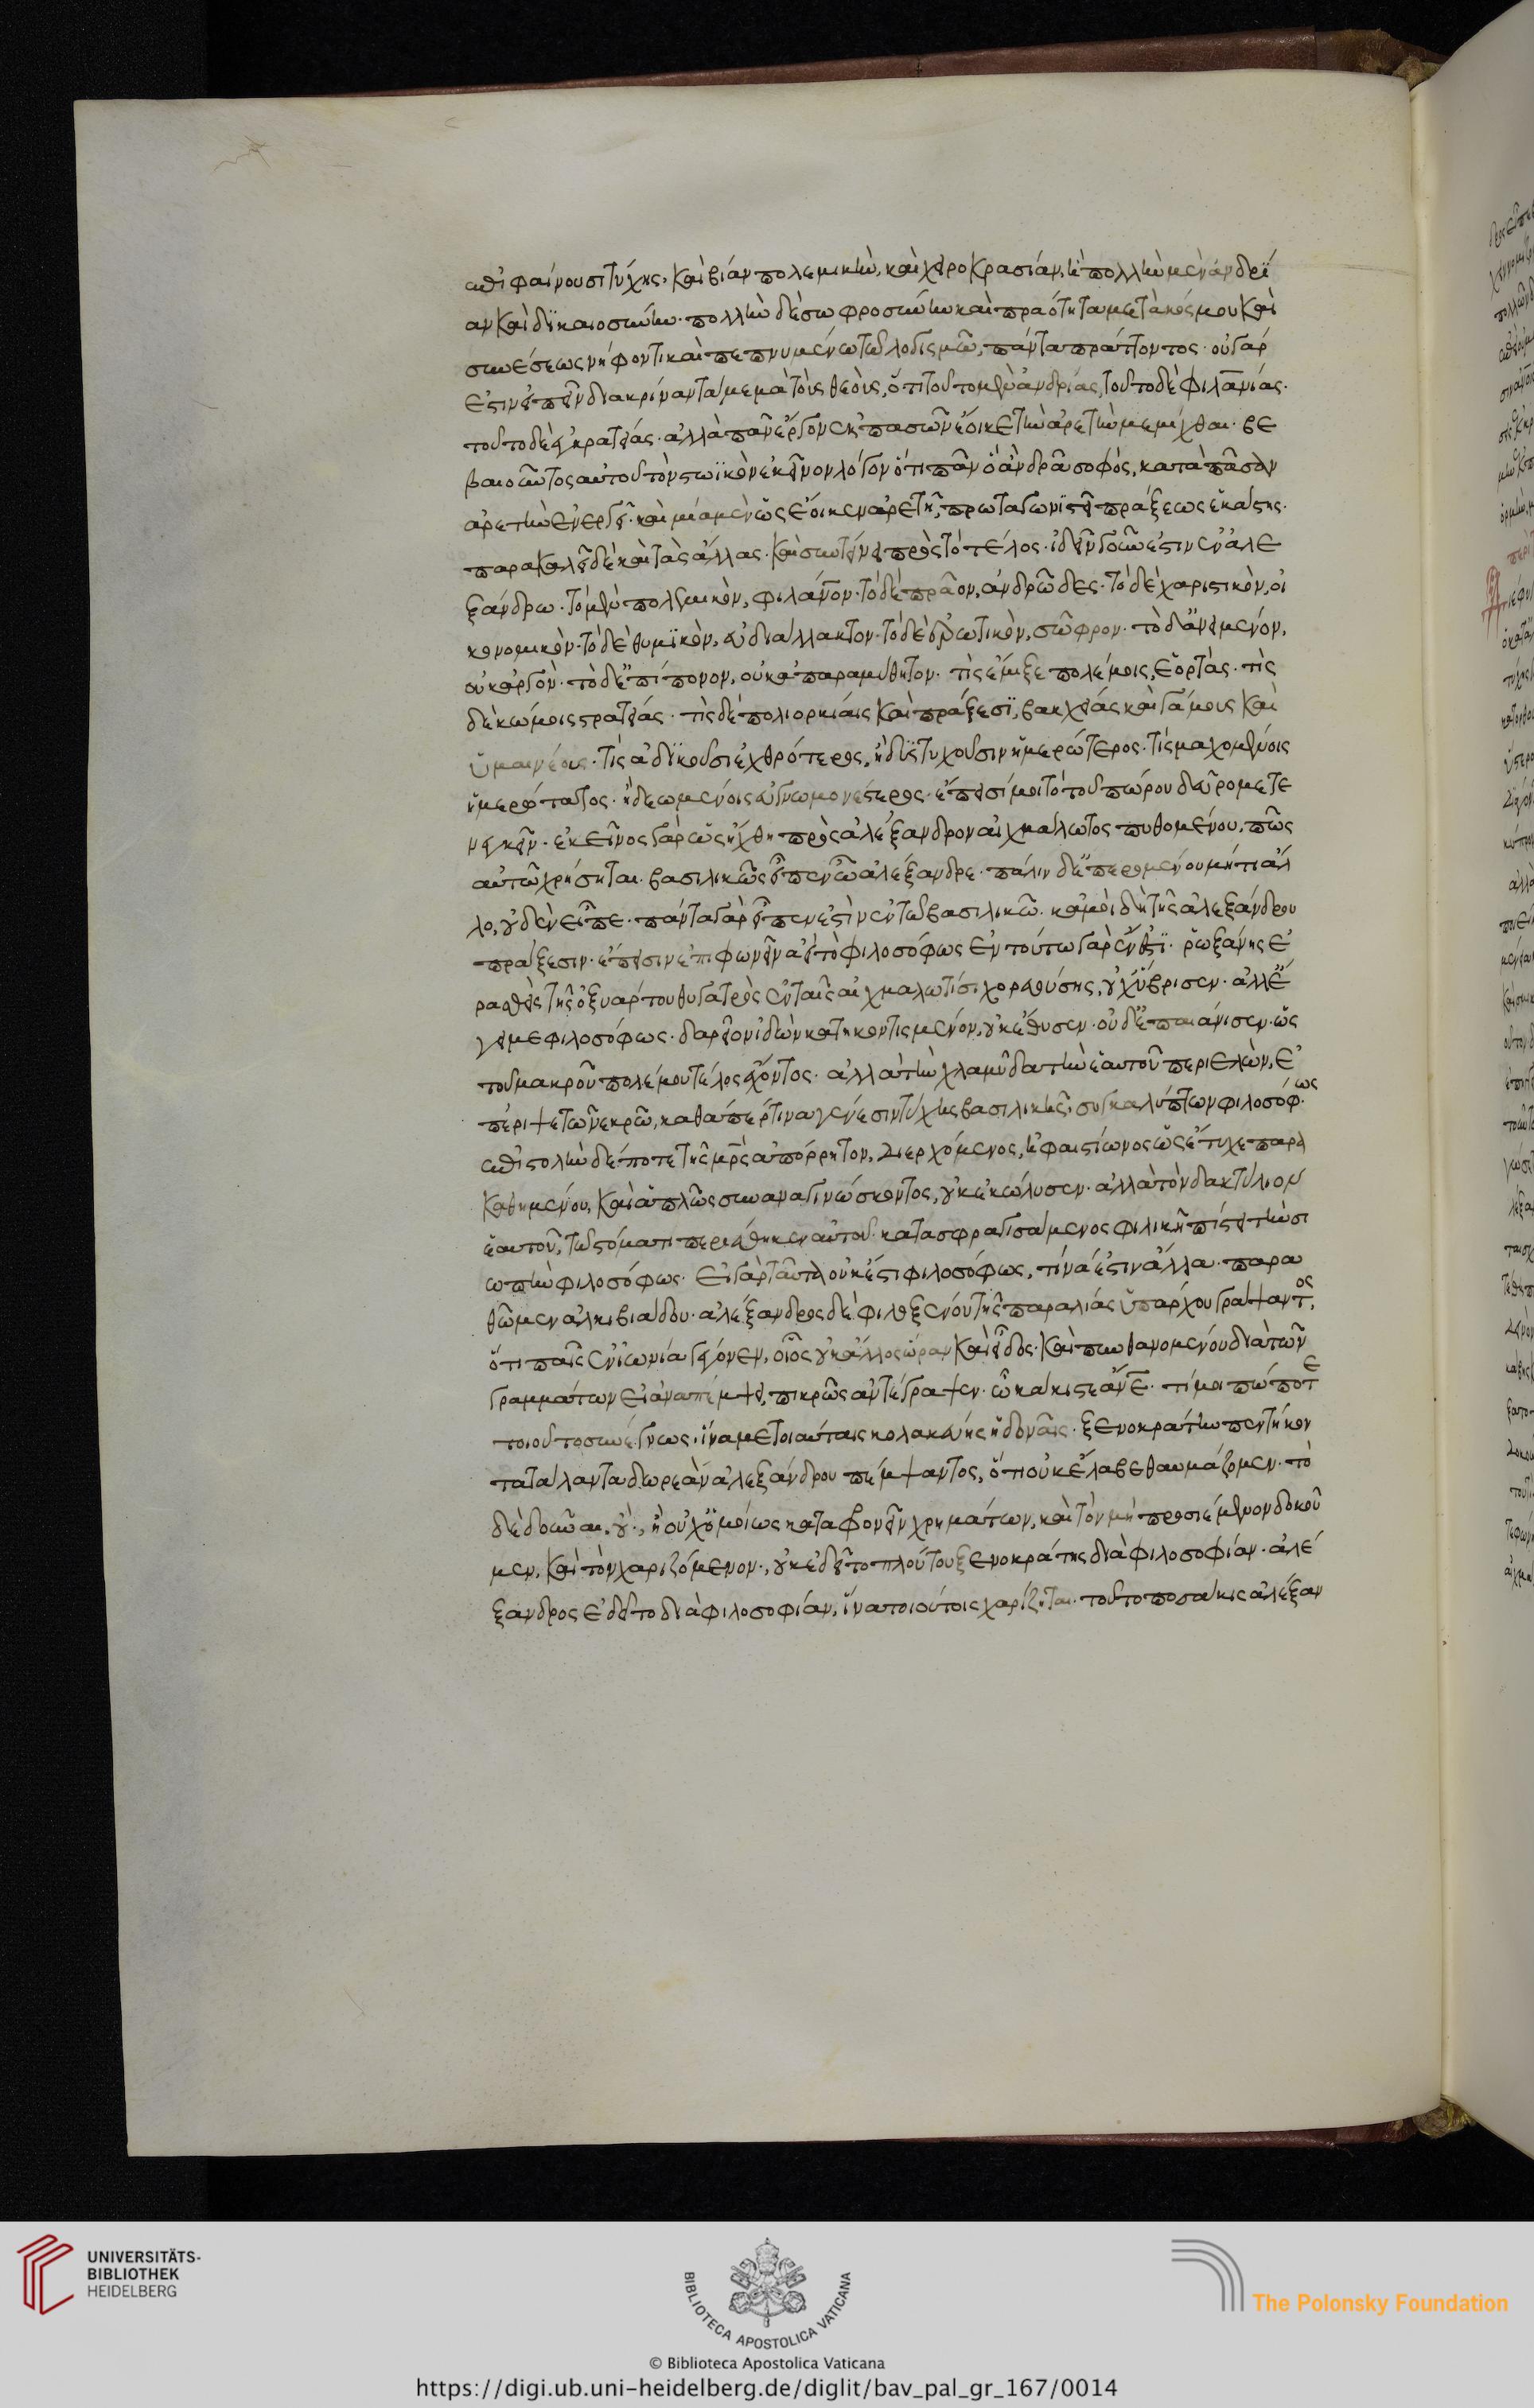 ἐπιφαίνουσι τύχης, καὶ βίαν πολεμικὴν, καὶ χειροκρασίαν, ἢ πολλὴν μὲν ἀνδρεί
αν καὶ δικαιοσύνην· πολλὴν δὲ σωφροσύνην καὶ πραότητα μετὰ κόσμου καὶ
συνέσεως νήφοντι καὶ πεπνυμένω τῶ λογισμῶ, πάντα πράττοντος· οὐ γάρ
ἐστιν εἰπεῖν διακρίναντα με μὰ τοὺς θεοὺς, ὅτι τοῦτο μὲν ἀνδρίας, τοῦτο δὲ φιλανίας·
τοῦτο δὲ ἐγκρατείας· ἀλλὰ πᾶν ἔργον ἐκ πασῶν ἔοικε τὴν ἀρετὴν μεμίχθαι· βε
βαιοῦντος αὐτοῦ τὸν στωϊκὸν ἐκεῖνον λόγον ὅτι πᾶν ὃ ἂν δρᾶ σοφός, κατὰ πᾶσαν
ἀρετὴν ἐνεργεῖ· καὶ μία μὲν ὡς ἔοικεν ἀρετὴ, πρωταγωνιστεῖ πράξεως ἑκάστης·
παρακαλεῖ δὲ καὶ τὰς ἄλλας· καὶ συντείνει πρὸς τὸ τέλος· ἰδεῖν γοῦν ἐστιν ἐν ἀλε
ξάνδρω· τὸ μὲν πολεμικὸν, φιλάνον· τὸ δὲ πρᾶον, ἀνδρῶδες· τὸ δὲ χαριστικὸν, οἰ
κονομικὸν· τὸ δὲ θυμϊκὸν, εὐδιάλλακτον· τὸ δὲ ἐρωτικὸν, σῶφρον· τὸ δ' ἀνειμένον,
οὐκ ἀργὸν· τὸ δ' ἐπίπονον, οὐκ ἀπαραμύθητον· τίς ἔμιξε πολέμοις, ἑορτάς· τίς
δὲ κώμοις στρατείας· τίς δὲ πολιορκίαις καὶ πράξεσϊ, βακχείας καὶ γάμους καὶ
ὑμεναίους· τίς ἀδϊκοῦσι ἐχθρότερος, ἢ δυστυχοῦσιν ἡμερώτερος· τίς μαχομένοις
ἡμερότατος· ἢ δεομένοις εὐγνωμονέστερος· ἔπεισί μοι τὸ τοῦ πώρου δεῦρο μετε
νεγκεῖν· ἐκεῖνος γὰρ ὡς ἤχθη πρὸς ἀλέξανδρον αἰχμάλωτος πυθομένου, πῶς
αὐτῶ χρήσηται· βασιλικῶς εἶπεν ὦ ἀλέξανδρε· πάλιν δ' ἐπερομένου μή τι ἄλ
λο, οὐδὲν εἶπε· πάντα γὰρ εἶπεν ἐστὶν ἐν τῶ βασιλικῶ· κἀμοὶ δὴ τῆς ἀλεξάνδρου
πράξεσιν· ἔπεισιν ἐπιφωνεῖν ἀεὶ τὸ φιλοσόφως ἐν τούτω γὰρ ἔνεστϊ· ῥωξάνης ἐ
ρασθεὶς τῆς ὀξυάρτου θυγατρὸς ἐν ταῖς αἰχμαλωτίσι χορευούσης, οὐχ ὕβρισεν· ἀλλ' ἔ
γημε φιλοσόφως· δαρεῖον ἰδὼν κατηκοντισμένον, οὐκ ἔθυσεν· οὐδ' ἐπαιάνισεν· ὡς
τοῦ μακροῦ πολέμου τέλος ἔχοντος· ἀλλὰ τὴν χλαμύδα τὴν ἑαυτοῦ περιελὼν, ἔ
περιψε τῶ νεκρῶ, καθάπερ τινα γένεσιν τύχης βασιλικῆς συγκαλύπτων φιλοσόφως
ἐπιστολὴν δέ ποτε τῆς μρὸς ἀπόρρητον, διερχόμενος, ἡφαιστίωνος ὡς ἔτυχε παρα
καθημένου, καὶ ἁπλῶς συναναγινώσκοντος, οὐκ ἐκώλυσεν· ἀλλὰ τὸν δακτύλιον
ἑαυτοῦ, τῶ στόματι περιέθηκεν αὐτοῦ· κατασφραγισάμενος φιλικῆ πίστει τὴν σι
ωπὴν φιλοσόφως· εἰ γὰρ ταῦτα οὐκ ἔστι φιλοσόφως, τίνα ἐστιν ἄλλα· παρα
θῶμεν ἀλκιβιάδου· ἀλέξανδρος δὲ φιλοξένου τῆς παραλίας ὑπάρχου γράψαντος,
ὅτι παῖς ἐν ἰωνία γέγονεν, οἷος οὐκ ἄλλος ὥραν καὶ εἶδος· καὶ πυνθανομένου διὰ τῶν
γραμμάτων εἰ ἀναπέμψει, πικρῶς ἀντέγραψεν· ὦ κάκιστε ἀνε· τί μοι πώποτε
τοιοῦτο συνέγνως· ἵνα με τοιαύταις κολακεύης ἡδοναῖς· ξενοκράτην πεντήκον
τα τάλαντα δωρεὰν ἀλεξάνδρου πέμψαντος, ὅτι οὐκ ἔλαβε θαυμάζομεν· τὸ
δὲ δοῦναι, οὔ·, ἢ οὐχ ὁμοίως καταφρονεῖν χρημάτων, καὶ τὸν μὴ προσιέμενον δοκοῦ
μεν, καὶ τὸν χαριζόμενον·, οὐκ ἐδεῖτο πλούτου ξενοκράτης διὰ φιλοσοφίαν· ἀλέ
ξανδρος ἐδεῖτο διὰ φιλοσοφίαν, ἵνα τοιούτοις χαρίζηται· τοῦτο ποσάκις ἀλέξαν
UNIVERSITÄTS-
BIBLIOTHEK
HEIDELBERG
BIBLIOTECA APOSTOLICA VATICANA
The Polonsky Foundation
© Biblioteca Apostolica Vaticana
https://digi.ub.uni-heidelberg.de/diglit/bav_pal_gr_167/0014